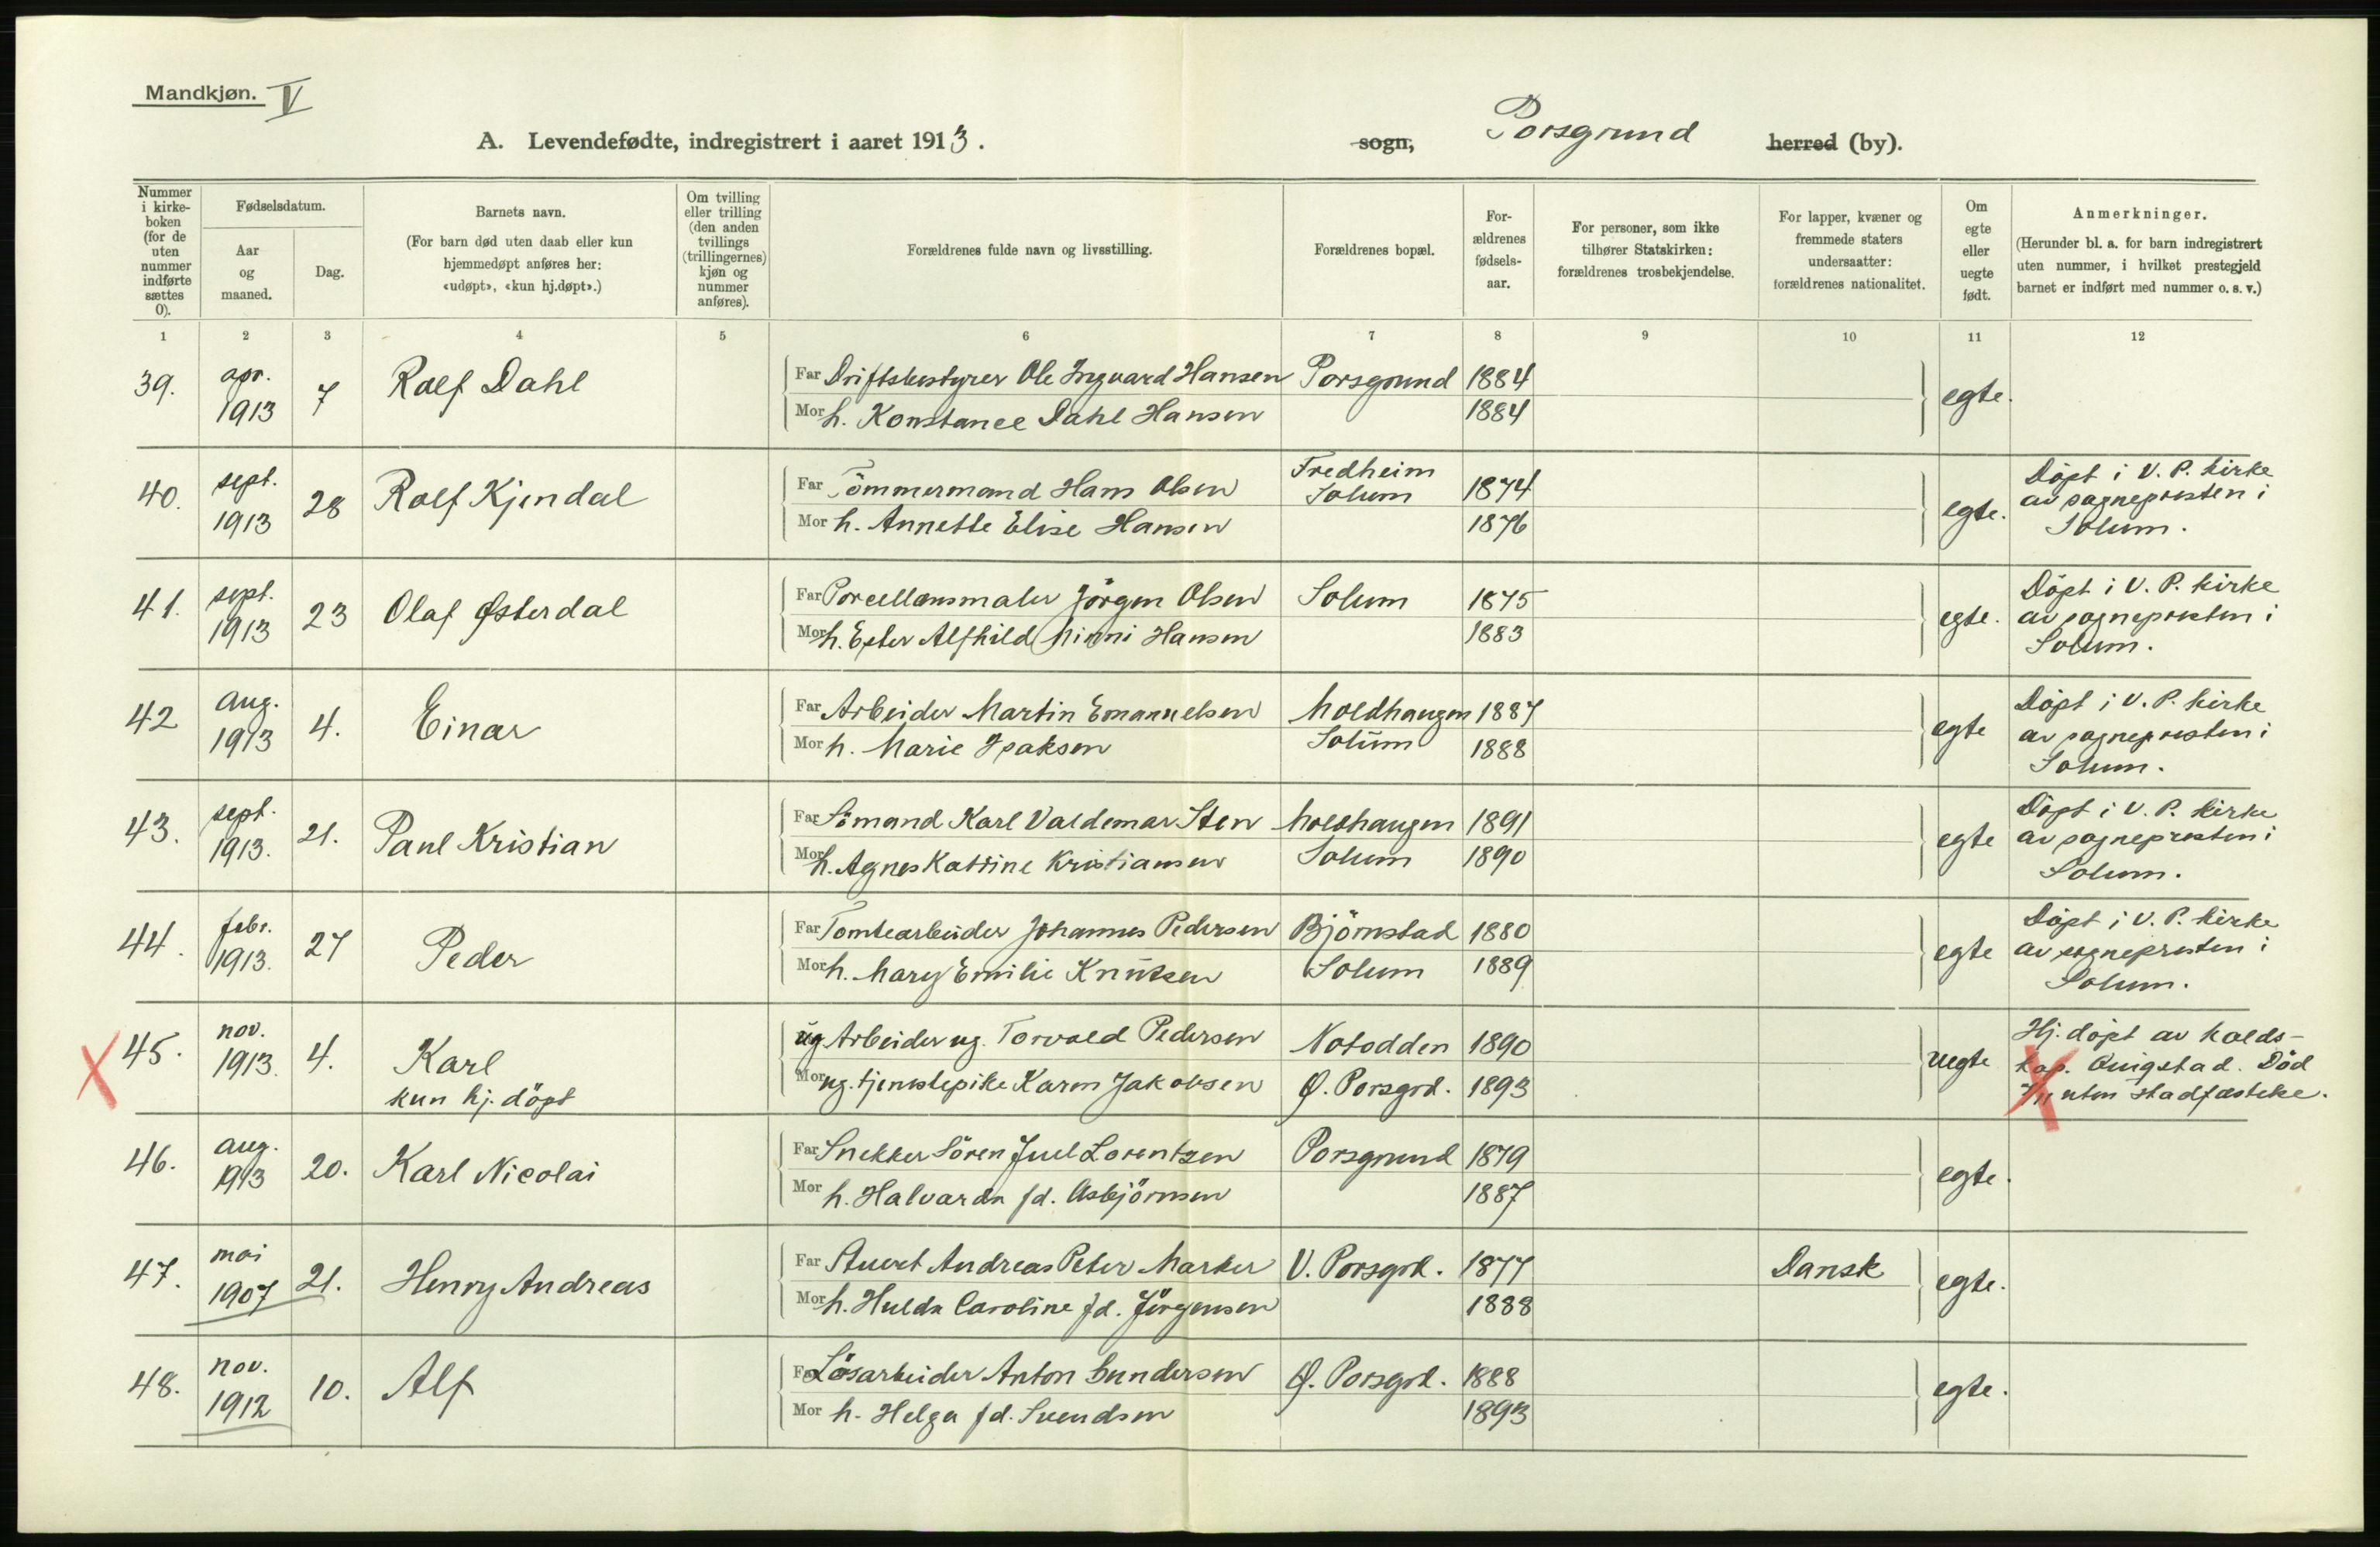 Mandkjøn. V
A. Levendefødte, indregistrert i aaret 1913.
sogn, Porsgrund herred (by).
Nummer i kirkeboken (for de uten nummer indførte sættes 0).
Fødselsdatum.
Aar og maaned.
Dag.
Barnets navn.
(For barn død uten daab eller kun hjemmedøpt anføres her: «udøpt», «kun hj.døpt».)
Om tvilling eller trilling (den anden tvillings (trillingernes) kjøn og nummer anføres).
Forældrenes fulde navn og livsstilling.
Forældrenes bopæl.
Forældrenes fødselsaar.
For personer, som ikke tilhører Statskirken: forældrenes trosbekjendelse.
For lapper, kvæner og fremmede staters undersaatter: forældrenes nationalitet.
Om egte eller uegte født.
Anmerkninger.
(Herunder bl. a. for barn indregistrert uten nummer, i hvilket prestegjeld barnet er indført med nummer o. s. v.)
1 2 3 4 5 6 7 8 9 10 11 12
39. apr. 1913 7 Rolf Dahl
Far Driftsbestyrer Ole Ingvard Hansen Porsgrund 1884
Mor h. Konstance Dahl Hansen 1884
egte.
40. sept. 1913 28 Rolf Kjendal
Far Tömmermand Hans Olsen Fredheim Solum 1874
Mor h. Annette Elise Hansen 1876
egte.
Döpt i V. P. kirke
av sognepresten i
Solum.
41. sept. 1913 23 Olaf Østerdal
Far Porcellænsmaler Jörgen Olsen Solum 1875
Mor h. Ester Alfhild Minni Hansen 1883
egte.
Döpt i V. P. kirke
av sognepresten i
Solum.
42 aug. 1913 4. Einar
Far Arbeider Martin Emanuelsen Moldhaugen 1887
Mor h. Marie Isaksen Solum 1888
egte
Döpt i V. P. kirke
av sognepresten i
Solum.
43. sept. 1913. 21. Paul Kristian
Far Sömand Karl Valdemar Sten Moldhaugen 1891
Mor h. Agnes Katrine Kristiansen Solum 1890
egte
Döpt i V. P. kirke
av sognepresten i
Solum.
44. febr. 1913. 27 Peder
Far Tomtearbeider Johannes Pedersen Björnstad 1880
Mor h. Mary Emilie Knutsen Solum 1889
egte
Döpt i V. P. kirke
av sognepresten i
Solum.
45. nov. 1913. 4. Karl
kun hj. döpt
ug Arbeider ug. Torvald Pedersen Notodden 1890
Mor ug. tjenestepike Karen Jakobsen Ø. Porsgrd. 1893
uegte
Hj. döpt av kalds-
kap. Quigstad. Död
7/11 uten stadfæstelse.
46. aug. 1913 20. Karl Nicolai
Far Snekker Sören Juel Lorentzen Porsgrund 1879
Mor h. Halvarda fd. Asbjörnsen 1887
egte.
47. mai 1907 21. Henry Andreas
Far Stuert Andreas Peter Marker V. Porsgrd. 1877 Dansk
Mor h. Hulda Caroline fd. Jörgensen 1888
egte.
48. nov. 1912 10. Alf
Far Lösarbeider Anton Gundersen Ø. Porsgrd. 1888
Mor h. Helga fd. Svendsen 1893
egte.